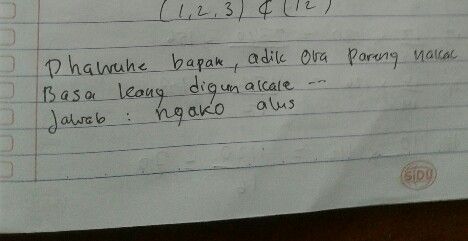 (1,2,3) ¢ (12)
Dhawuhe bapak, adik ora pareng nakal
Basa kang digunakake ...
Jawab : ngoko alus
SIDU